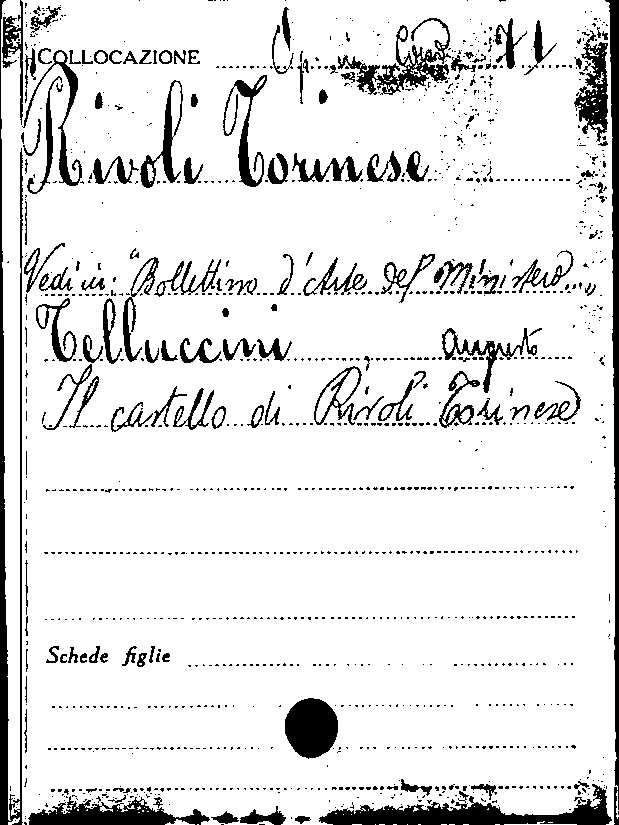 COLLOCAZIONE Op. in Corso 71
Rivoli Torinese
Vedi in: "Bollettino d'Arte del Ministero...„
Telluccini, Augusto
Il castello di Rivoli Torinese
Schede figlie